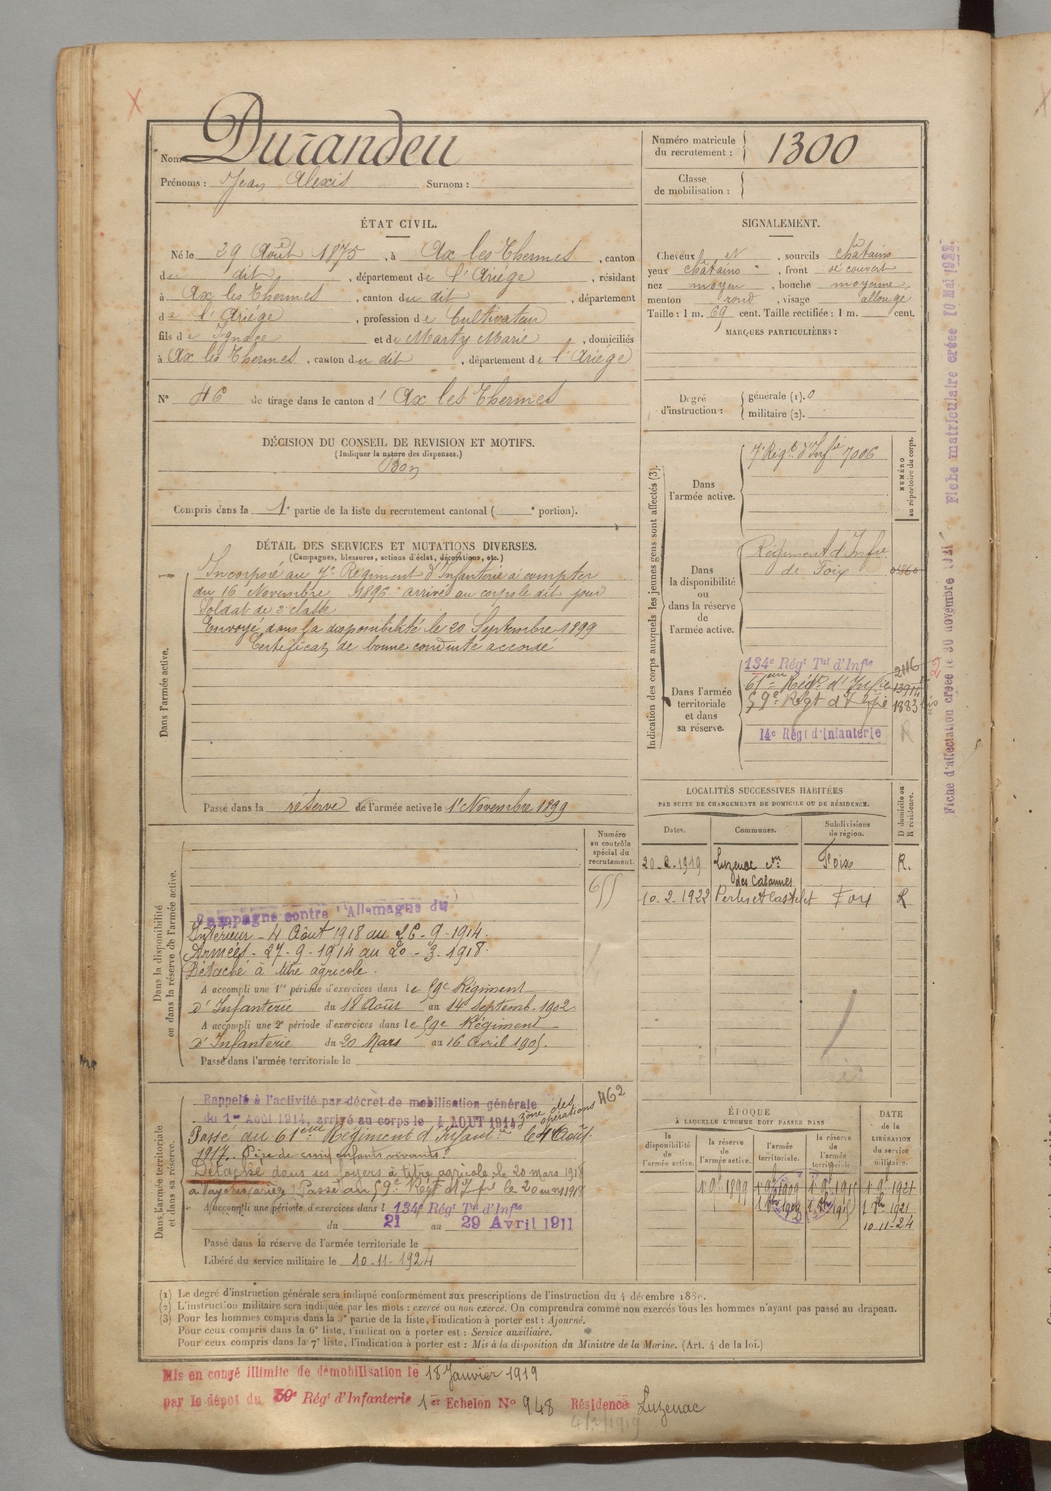 Nom Durandeu
Prénoms : Jean Alexis Surnom :
Numéro matricule du recrutement : 1300
Classe de mobilisation :
ÉTAT CIVIL.
Né le 29 Août 1875, à Ax les Thermes, canton
de dit, département de l'Ariège, résidant
à Ax les Thermes, canton du dit, département
de l'Ariège, profession de Cultivateur
fils de Ignace et de Marty Marie, domiciliés
à Ax les Thermes, canton du dit, département de l'Ariège
N° 46 de tirage dans le canton d' Ax les Thermes
SIGNALEMENT.
Cheveux et, sourcils châtains
yeux châtains, front découvert
nez moyen, bouche moyenne
menton rond, visage allongé
Taille : 1 m. 69 cent. Taille rectifiée : 1 m. cent.
MARQUES PARTICULIÈRES :
Degré d'instruction : générale (1). 0
militaire (2).
DÉCISION DU CONSEIL DE REVISION ET MOTIFS.
(Indiquer la nature des dispenses.)
Bon
Compris dans la 1e partie de la liste du recrutement cantonal ( e portion).
DÉTAIL DES SERVICES ET MUTATIONS DIVERSES.
(Campagnes, blessures, actions d'éclat, décorations, etc.)
Dans l'armée active.
Incorporé au 7e Régiment d'Infanterie à compter
du 16 Novembre 1896 arrivé au corps le dit jour
Soldat de 2e classe
Envoyé dans la disponibilité le 20 Septembre 1899
Certificat de bonne conduite accordé
Passé dans la réserve de l'armée active le 1er Novembre 1899
Indication des corps auxquels les jeunes gens sont affectés (3).
NUMÉRO au répertoire du corps.
Dans l'armée active.
7e Régt d'Infie 7006
Dans la disponibilité ou dans la réserve de l'armée active.
Régiment d'Infie
de Foix
Dans l'armée territoriale et dans sa réserve.
134e Régt Tal d'Infie 2116
61eme Régt d'Infie
59e Régt d'Infie 1883
14e Régt d'Infanterie R
LOCALITÉS SUCCESSIVES HABITÉES
PAR SUITE DE CHANGEMENTS DE DOMICILE OU DE RÉSIDENCE.
Dates. Communes. Subdivisions de région. D domicile ou R résidence.
20.2.1919 Luzenac des Cabannes Foix R.
10.2.1922 Perles et Castelet Foix R
Numéro au contrôle spécial du recrutement.
Dans la disponibilité ou dans la réserve de l'armée active.
Campagne contre l'Allemagne du
Intérieur - 4 Août 1918 au 26-9-1914.
Armées - 27-9-1914 au 20-3-1918.
Détaché à titre agricole.
A accompli une 1re période d'exercices dans le 59e Régiment
d'Infanterie du 18 Août au 14 Septemb. 1902
A accompli une 2e période d'exercices dans le 59e Régiment
d'Infanterie du 20 Mars au 16 Avril 1905.
Passé dans l'armée territoriale le
Dans l'armée territoriale et dans sa réserve.
Rappelé à l'activité par décret de mobilisation générale
du 1er Août 1914, arrivé au corps le 4 AOUT 1914 zône des opérations 462
Passé au 61eme Régiment d'Infantie le 4 Août
1917. Père de cinq enfants vivants.
Détaché dans ses foyers à titre agricole le 20 mars 1918
Passé au 59e Régt d'Infie le 20 mars 1918
A accompli une période d'exercices dans l 134e Régt Tal d'Infie
du 21 au 29 Avril 1911
Passé dans la réserve de l'armée territoriale le
Libéré du service militaire le 10-11-1924
ÉPOQUE
À LAQUELLE L'HOMME DOIT PASSER DANS
la disponibilité de l'armée active. la réserve de l'armée active. l'armée territoriale. la réserve de l'armée territoriale.
DATE DE LA LIBÉRATION du service militaire.
1 9bre 1899 1 9bre 1909 1 9bre 1915 1 9bre 1921
10-11-24
(1) Le degré d'instruction générale sera indiqué conformément aux prescriptions de l'instruction du 4 décembre 1889.
(2) L'instruction militaire sera indiquée par les mots : exercé ou non exercé. On comprendra comme non exercés tous les hommes n'ayant pas passé au drapeau.
(3) Pour les hommes compris dans la 5e partie de la liste, l'indication à porter est : Ajourné.
Pour ceux compris dans la 6e liste, l'indication à porter est : Service auxiliaire.
Pour ceux compris dans la 7e liste, l'indication à porter est : Mis à la disposition du Ministre de la Marine. (Art. 4 de la loi.)
Mis en congé illimité de démobilisation le 18 Janvier 1919
par le dépôt du Régt d'Infanterie 1er Echelon N° 948 Résidence Luzenac
Fiche d'affectation créée le 30 novembre Fiche matriculaire créée 10 Mai 1922.